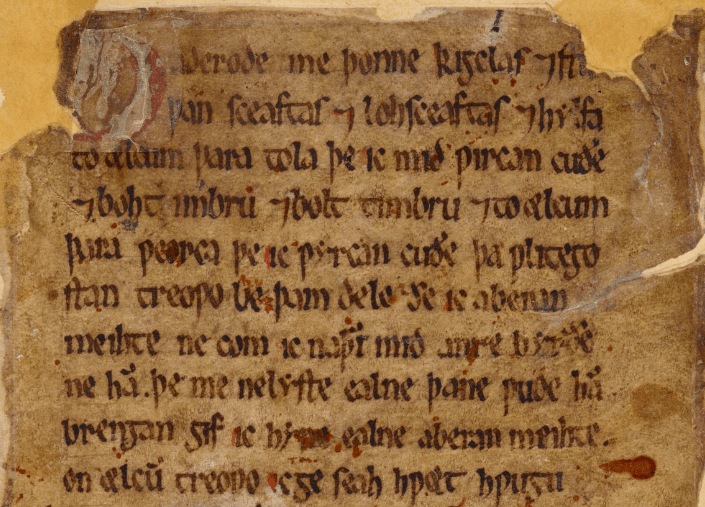 aderode me þonne kigclas ⁊
þan sceaftas ⁊ lohsceaftas ⁊ hylfa
to ælcum þara tola þe ic mid ƿircan cuðe
⁊ boht imbrū ⁊ bolt timbru ⁊ to ælcum
þara ƿeorca þe ic ƿyrcan cuðe þa ƿlitego
stan treoƿo be þam dele ðe ic aberan
meihte ne com ic naþer mid anre byrðe
ne hā. þe me ne lyste ealne þane ƿude hā
brengan gif ic hyne ealne aberan meihte.
on ælcū treoƿo ic ge seah hƿæt hƿugu